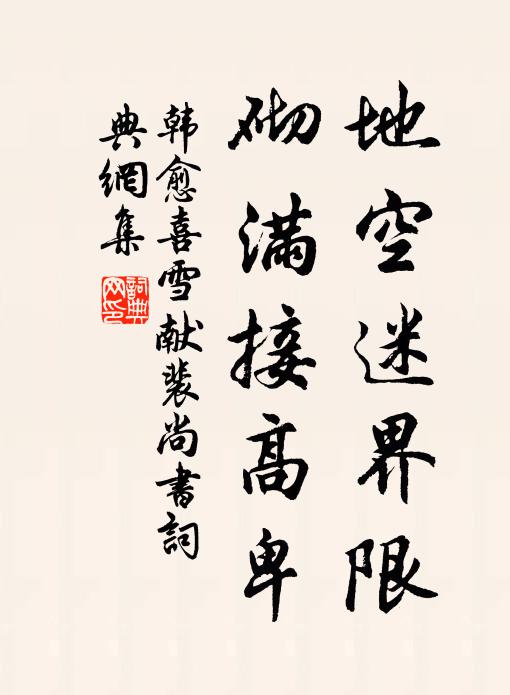 地空迷界限
砌满接高卑
韩愈喜雪献裴尚书詞
典網集
詞典网印